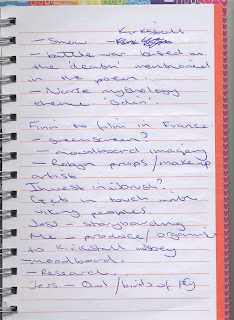 Kirkstall
- Snow -
- battle/war based on
the 'death' mentioned
in the poem.
- Norse mythology
theme 'Odin'.
Finn to film in France
- greenscreen?
- moodboard imagery
- Robyn props/makeup
artist
Invest in airbrush?
Get in touch with
viking peoples.
Jess - storyboarding
Me - produce/organise
to Kirkstall abbey
moodboard.
- Research.
Jess - Owl/birds of prey